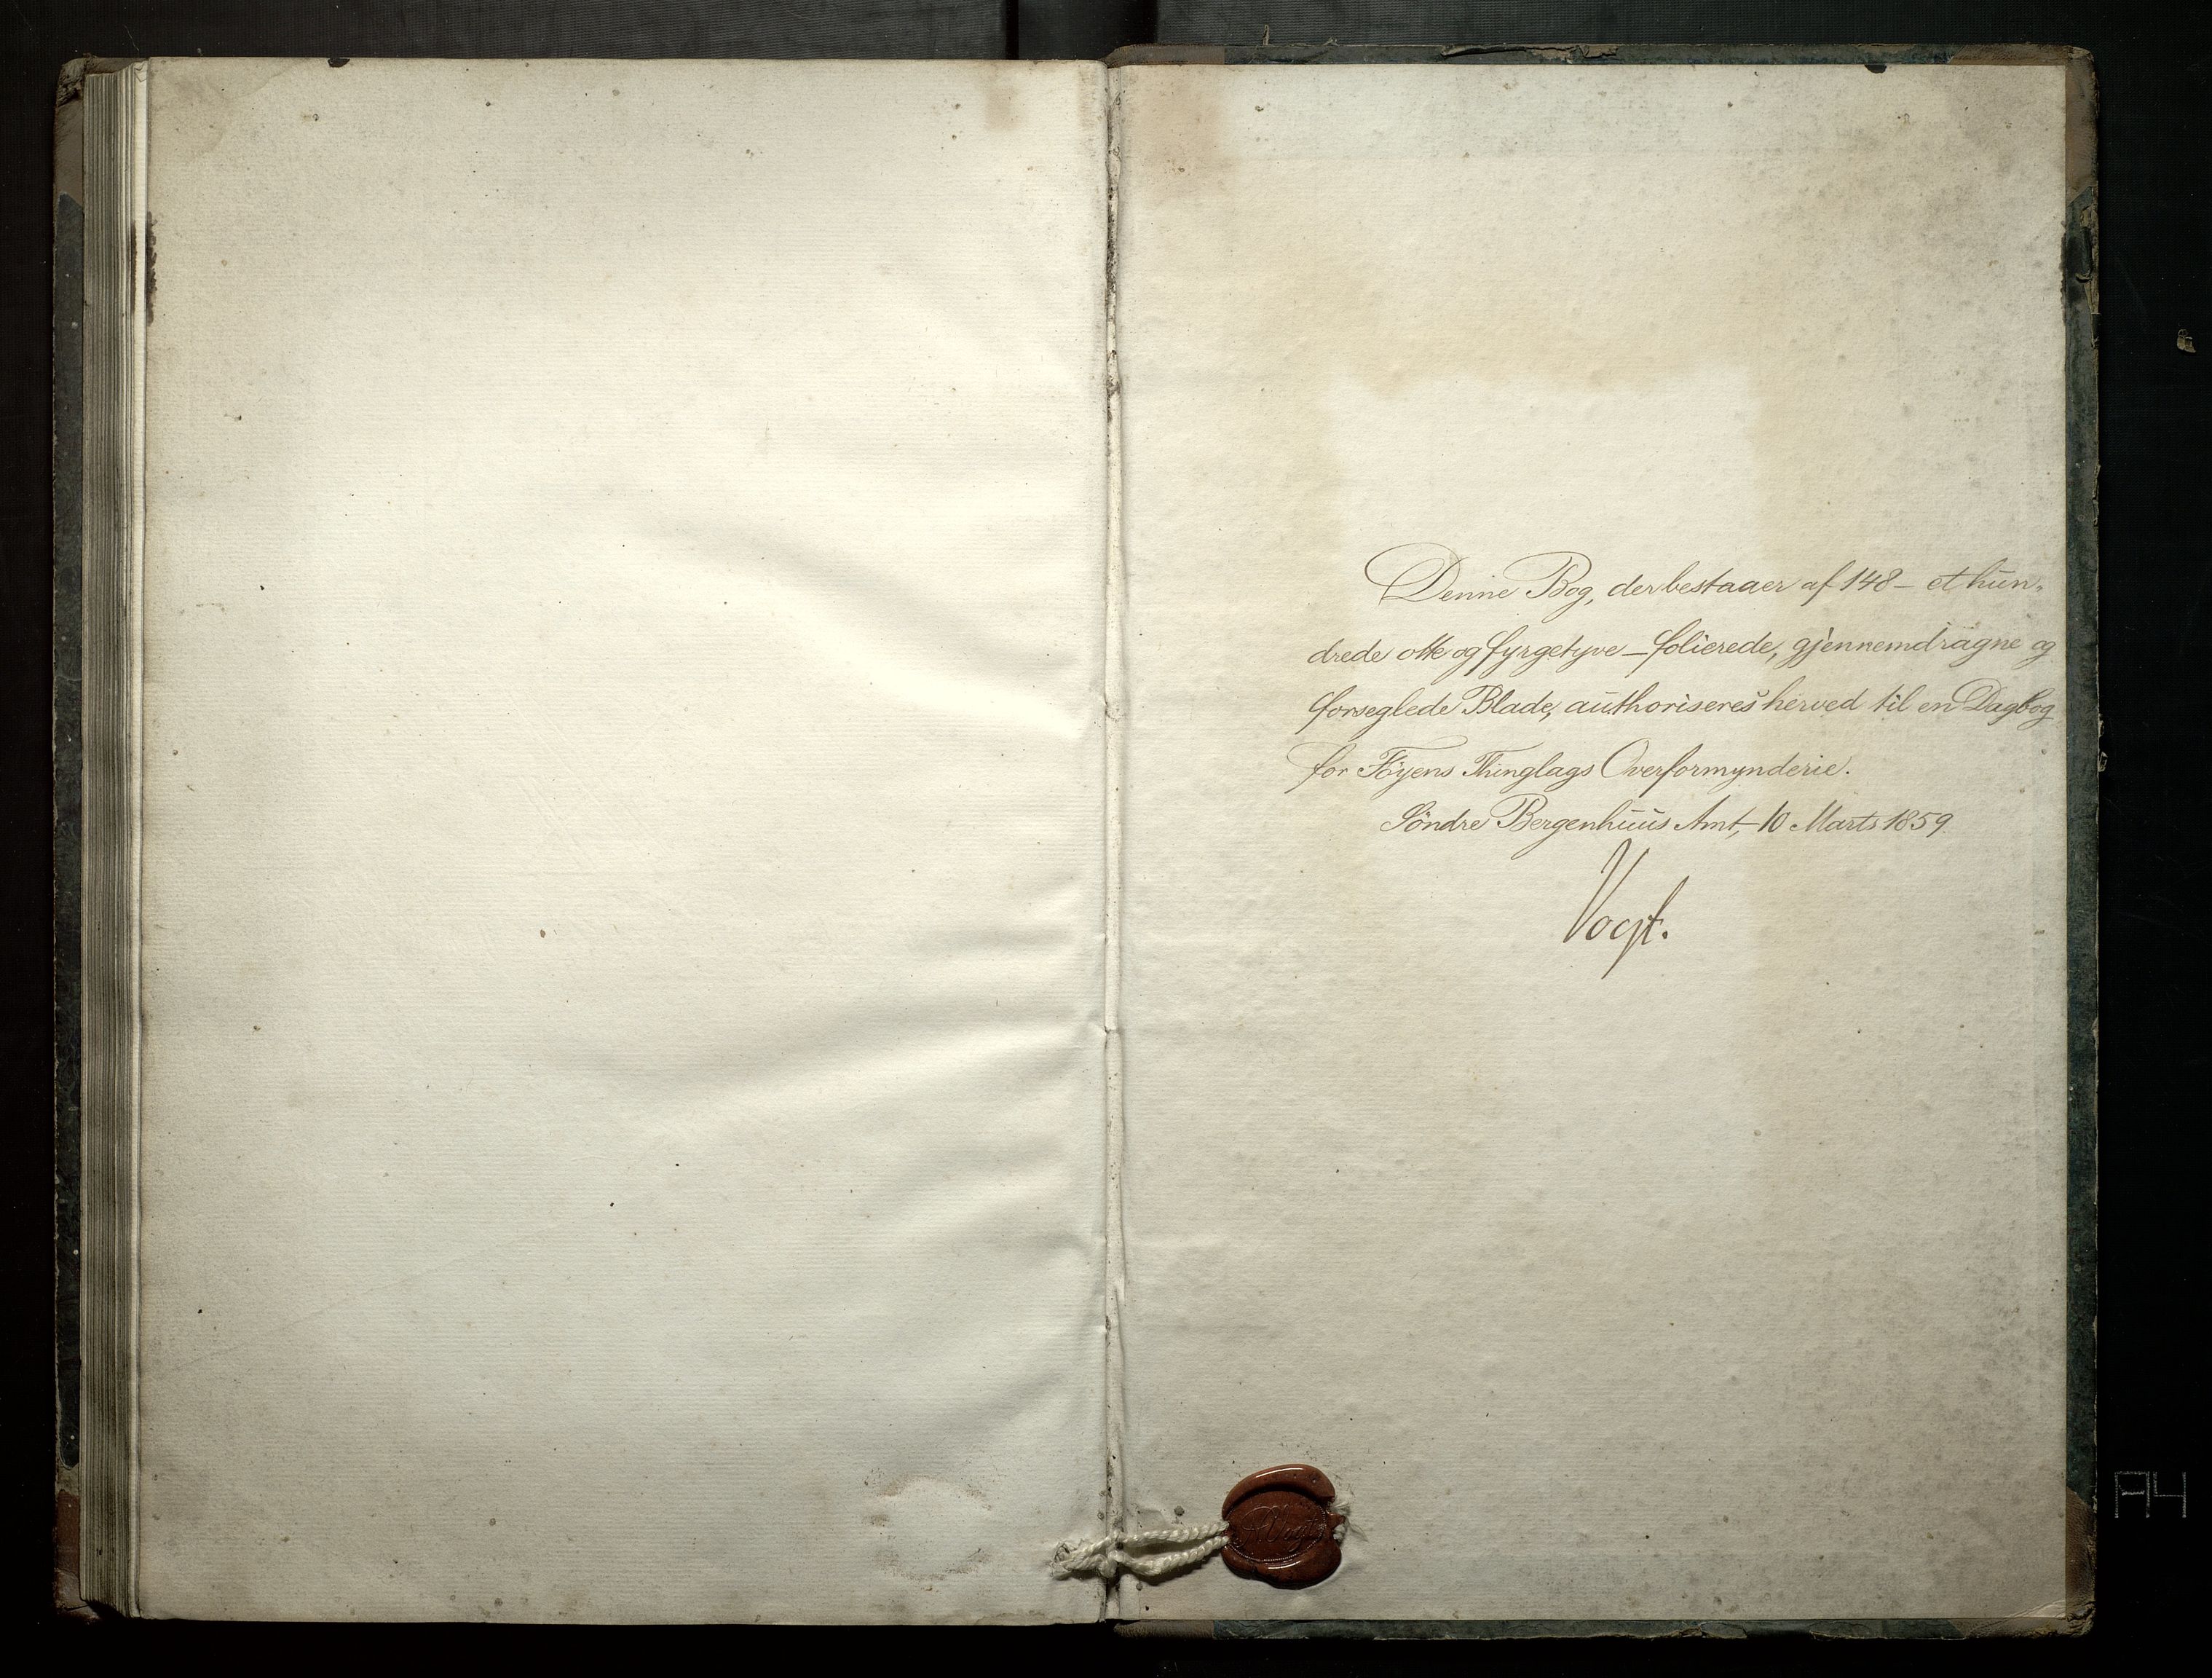 Denne Bog, der bestaaer af 148 – et hun-
drede otte og fyrgetyve – folierede, gjennemdragne og
forseglede Blade, authoriseres herved til en Dagbog
for Föyens Thinglags Overformynderie.
Söndre Bergenhuus Amt, 10 Marts 1859.
Vogt.
Vogt
A4